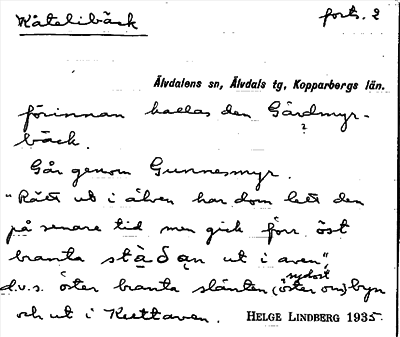 Kåtelibäck
forts. 2
Älvdalens sn, Älvdals tg, Kopparbergs län.
förinnan kallas den Gårdmyr-
?
bäck.
Går genom Gunnesmyr.
"Rätt ut i älven har dom lett den
på senare tid men gick förr öst
branta ut i aven",
sydost
d.v.s. öster branta slänten (öster om) byn
och ut i Kuttaven. HELGE LINDBERG 1935.